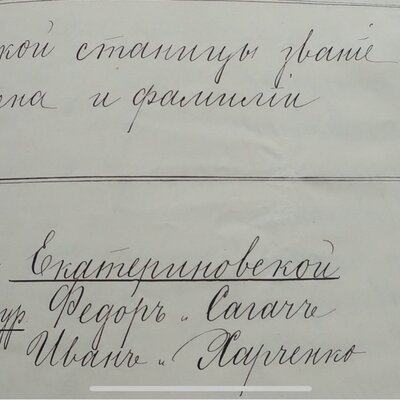 кой станицы званіе
ена и фамиліи
Екатериновской
ур Федоръ „ Сагачъ
Иванъ „ Харченко